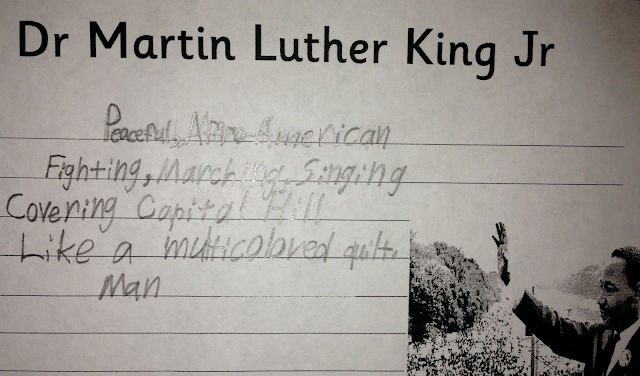 Dr Martin Luther King Jr
Peaceful, Afro-American
Fighting, Marching, Singing
Covering Capital Hill
Like a multicolored quilt.
Man